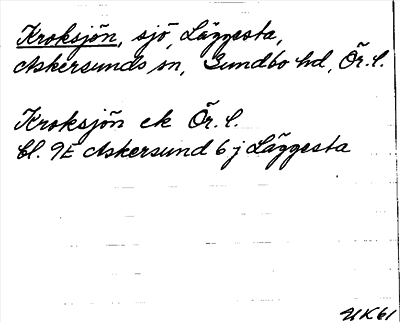 Kroksjön, sjö, Läggesta,
Askersunds sn, Sundbo hd, Ör. l.
Kroksjön ek Ör. l.
bl. 9E Askersund 6 j Läggesta
UK61